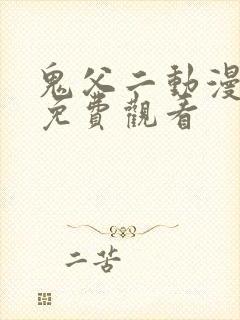 鬼父二動漫
免費觀看
二苦